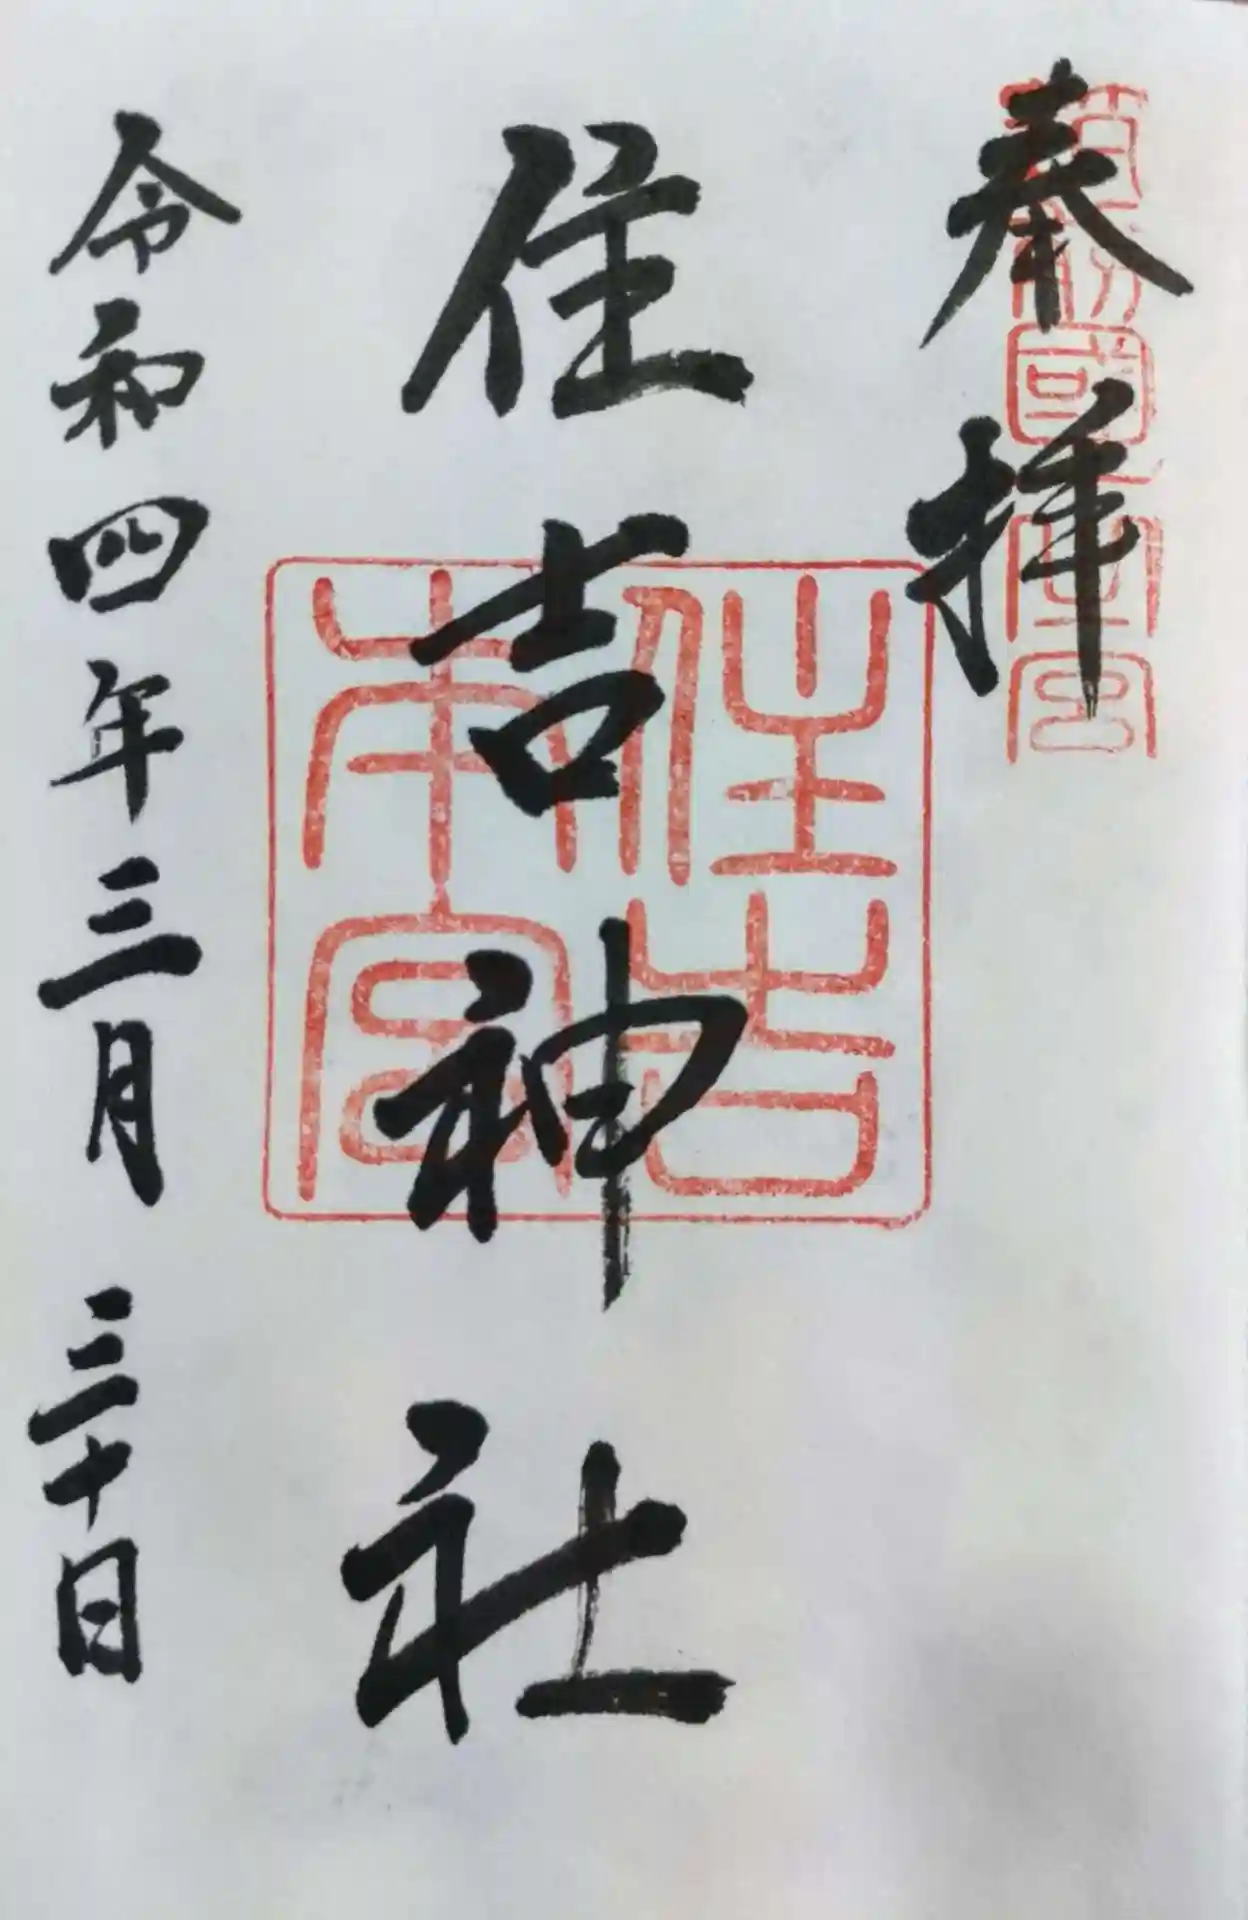 奉拝
住吉神社
住吉本宮
令和四年三月三十日